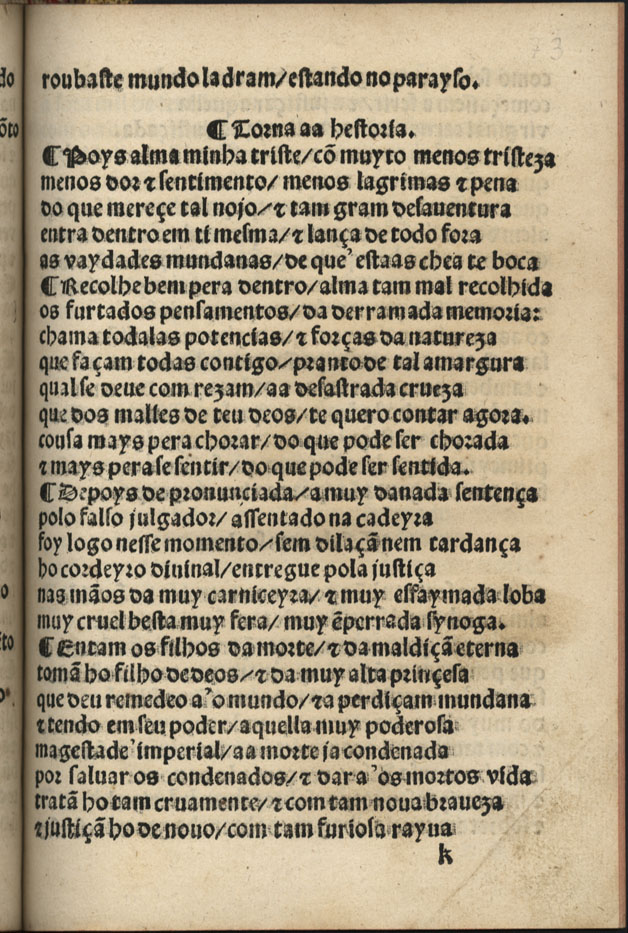 73
roubaste mundo ladram/estando no parayso.
¶ Torna aa hestoria.
¶ Poys alma minha triste/cõ muyto menos tristeza
menos dor ⁊ sentimento/menos lagrimas ⁊ pena
do que mereçe tal nojo/⁊ tam gram desauentura
entra dentro em ti mesma/⁊ lança de todo fora
as vaydades mundanas/de que' estaas chea te boca
¶ Recolhe bem pera dentro/alma tam mal recolhida
os furtados pensamentos/da derramada memoria:
chama todalas potencias/⁊ forças da natureza
que façam todas contigo/pranto de tal amargura
qual se deue com rezam/aa desastrada crueza
que dos malles de teu deos/te quero contar agora.
cousa mays pera chorar/do que pode ser chorada
⁊ mays pera se sentir/do que pode ser sentida.
¶ Depoys de pronunciada/a muy danada sentença
polo falso julgador/assentado na cadeyra
foy logo nesse momento/sem dilaçã nem tardança
ho cordeyro diuinal/entregue pola justiça
nas mãos da muy carniceyra/⁊ muy esfaymada loba
muy cruel besta muy fera/muy ẽperrada synoga.
¶ Entam os filhos da morte/⁊ da maldiçã eterna
tomã ho filho de deos/⁊ da muy alta prinçesa
que deu remedeo a'o mundo/⁊ a perdiçam mundana
⁊ tendo em seu poder/aquella muy poderosa
magestade' imperial/aa morte ja condenada
por saluar os condenados/⁊ dar a'os mortos vida
tratã ho tam cruamente/⁊ com tam noua braueza
⁊ justiçã ho de nouo/com tam furiosa rayua
k